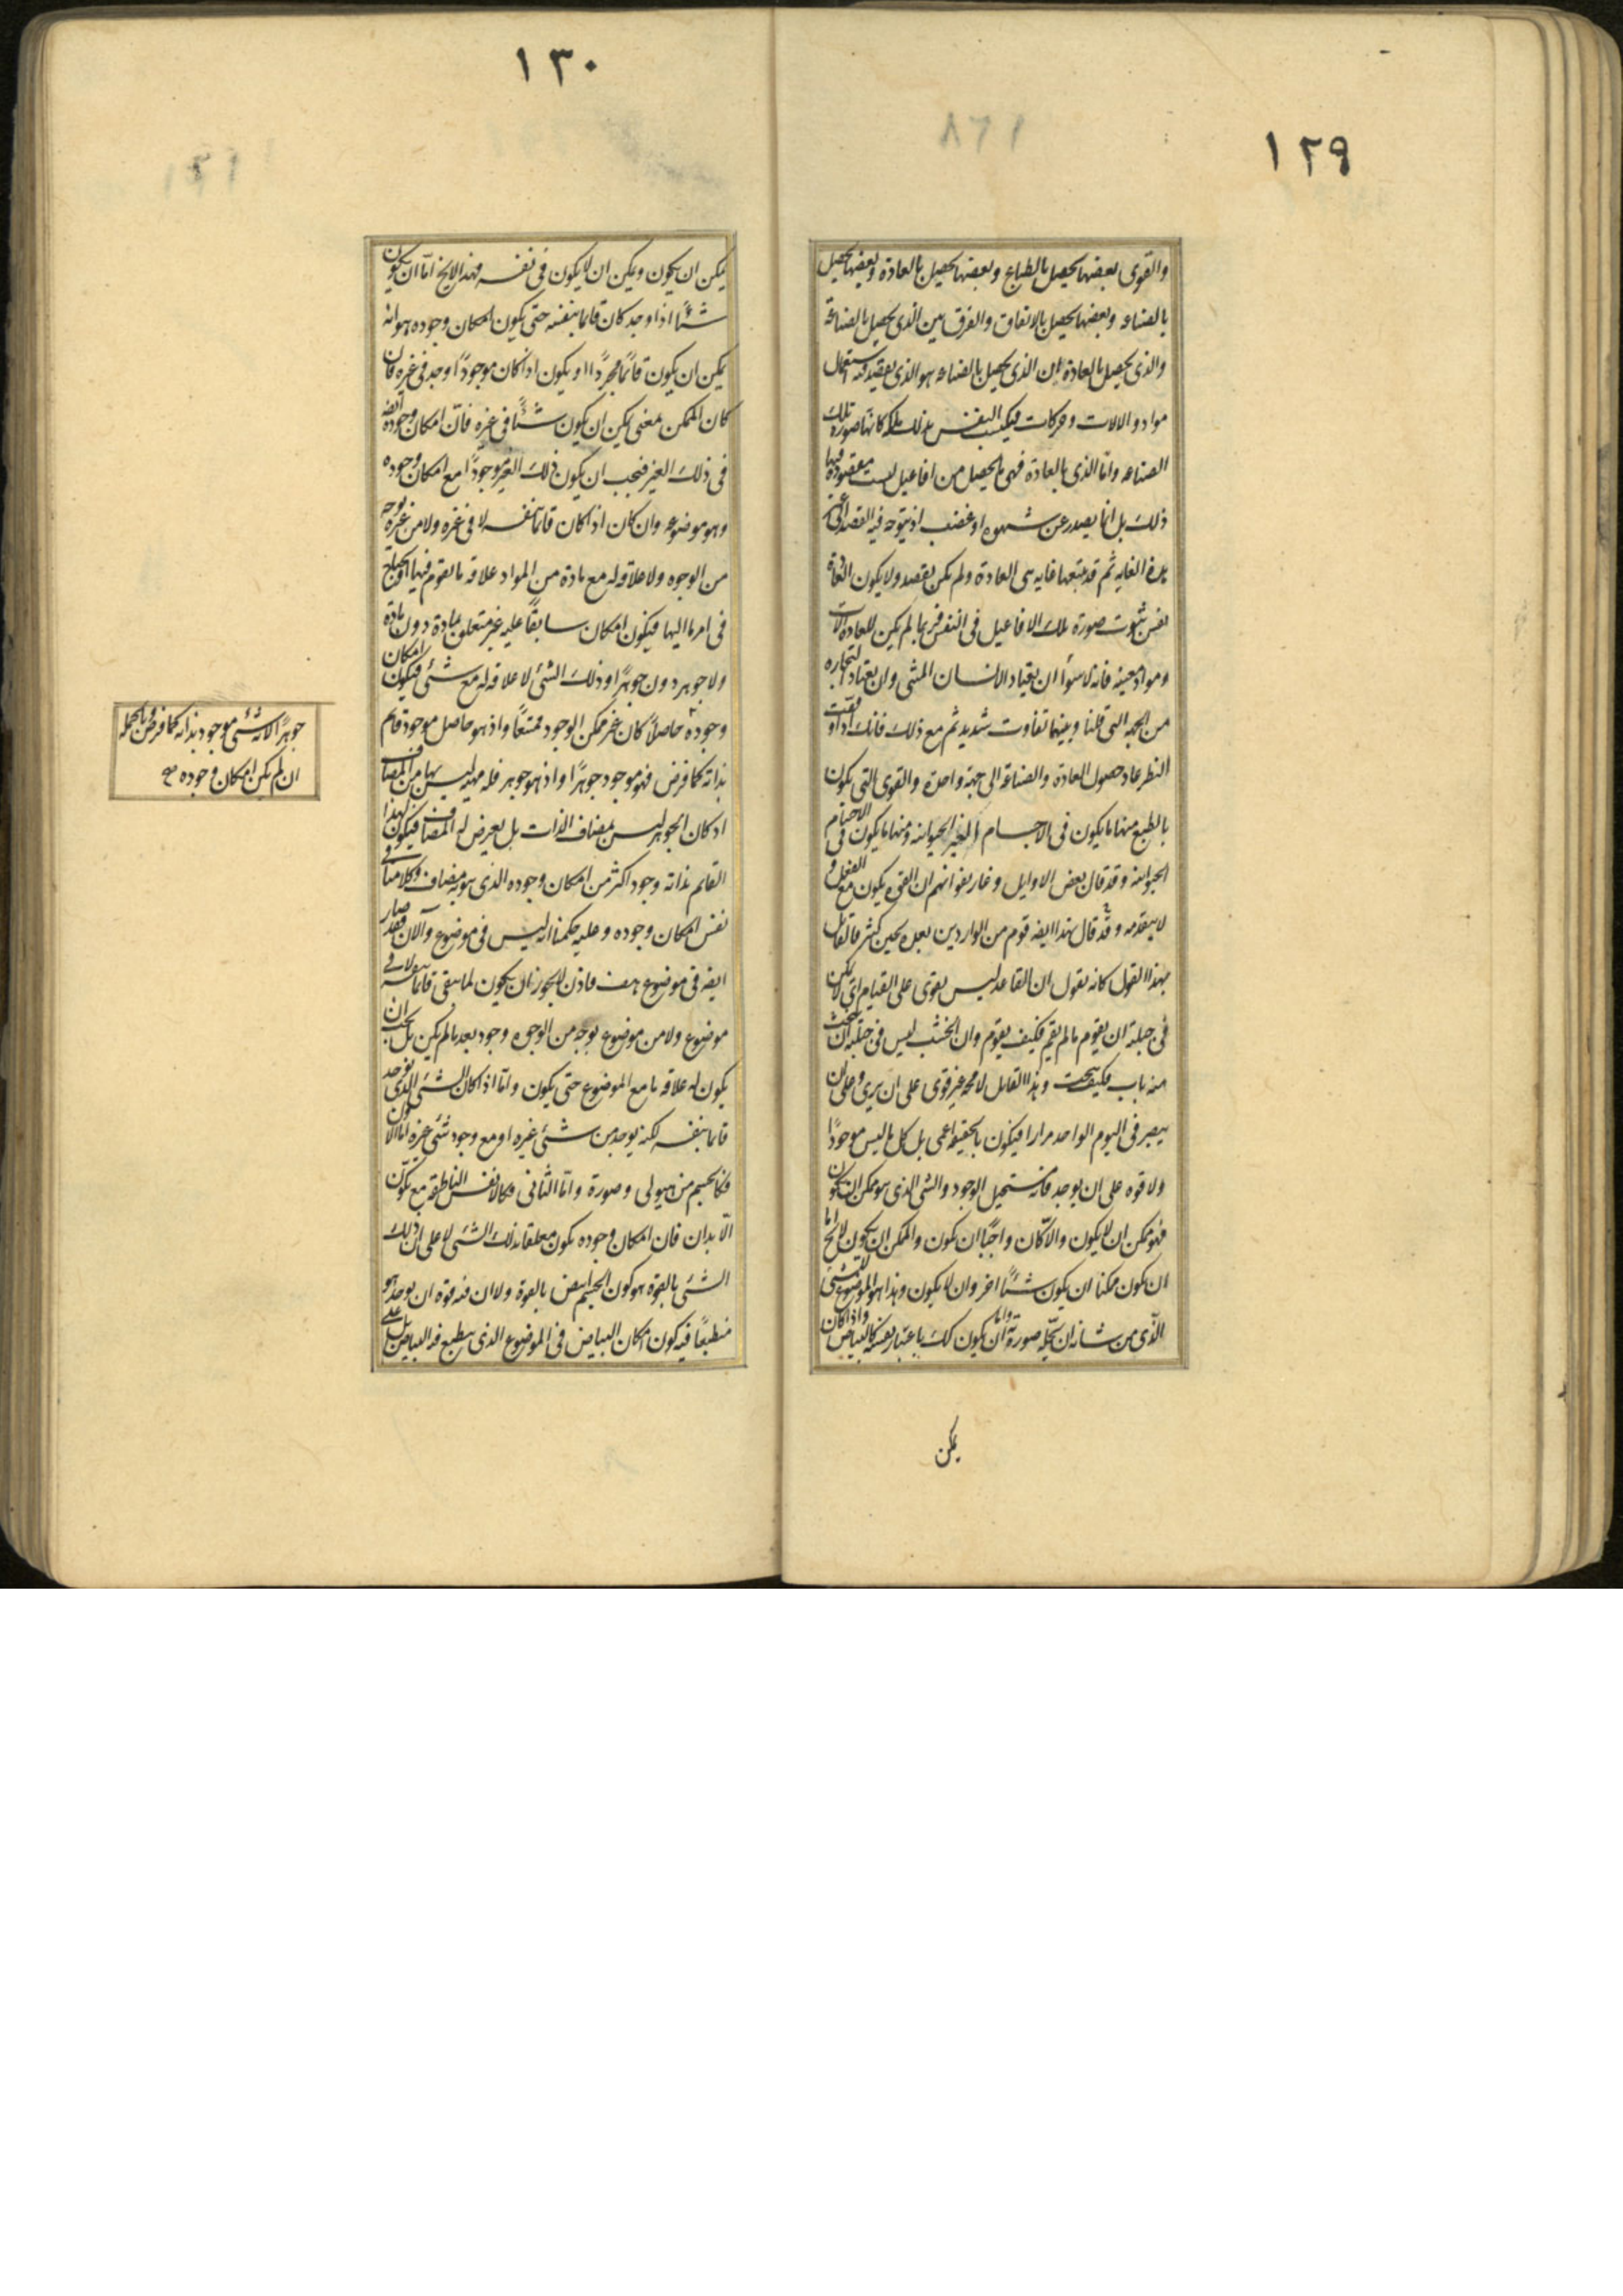 ١٢٩
والقوى بعضها يحصل بالطباع وبعضها يحصل بالعادة وبعضها يحصل
بالصناعه وبعضها يحصل بالاتفاق والفرق بين الذى يحصل بالصناعة
والذى يحصل بالعادة ان الذى يحصل بالصناعه هو الذى يقصد فيه استعمال
مواد والالات وحركات فيكتسب النفس بذلك ملكه كانها صورة تلك
الصناعه وامّا الذى بالعادة فهى ما يحصل من افاعيل ليست مقصودة فيها
ذلك بل انما يصدر عن شهوه او غضب او يتوجه فيه القصد الى غير
هذه الغايه ثم قد يتبعها غايه هى العادة ولم يكن بقصد ولا يكون العادة
نفس ثبوت صورة تلك الافاعيل فى النفس فربما لم يكن للعادة الات
ومواد معينه فانه لا سوأ ان يعتاد الانسان المشى وان يعتاد التجاره
من الجهه التى قلنا وبينهما تفاوت شديد ثم مع ذلك فانك اذا دققت
النظر عاد حصول العادة والصناعة الى جهة واحدة والقوى التى يكون
بالطبع منها ما يكون فى الاجسام الغير الحيوانيه ومنها ما يكون فى الاجسام
الحيوانيه وقد قال بعض الاوايل وغاريقو انهم ان القوه يكون مع الفعل و
لا يتقدمه وقد قال بهذا ايضه قوم من الواردين بعده بحين كثير فالقائل
بهذا القول كانه يقول ان القاعد ليس يقوى على القيام اى لا يمكن
فى جبلته ان يقوم ما لم يقم فكيف يقوم وان الخشب ليس فى جبلته ان ينحت
منه باب فكيف ينحت وهذا القايل لا محه غير قوى على ان يرى وعلى ان
يبصر فى اليوم الواحد مرارا فيكون بالحقيقه اعمى بل كل ما ليس موجودًا
ولا قوه على ان يوجد فانه مستحيل الوجود والشى الذى هو ممكن ان يكون
فهو ممكن ان لا يكون والا كان واجبًا ان يكون والممكن ان يكون لا يخ اما
ان يكون ممكنا ان يكون شئًا اخر وان لا يكون وهذا هو الموضوع للشئ
الذى من شانه ان يحلّه صورته واما ان يكون كك باعتبار نفسه كالبياض واذا كان
يمكن
١٣٠
يمكن ان يكون ويمكن ان لا يكون فى نفسه فهذا لا يخ امّا ان يكون
شئًا اذا وجد كان قائما بنفسه حتى يكون امكان وجوده هو انه
يمكن ان يكون قائمًا مجردًا او يكون اذا كان موجودًا وجد فى غيره فان
كان الممكن بمعنى يمكن ان يكون شئًا فى غيره فانّ امكان وجوده ايضه
فى ذلك الغير فيجب ان يكون ذلك الغير موجودًا مع امكان وجوده
وهو موضوعه وان كان اذا كان قائما بنفسه لا فى غيره ولا من غيره بوجه
من الوجوه ولا علاقه له مع مادة من المواد علاقه ما يقوم فيها او يحتاج
فى امر ما اليها فيكون امكان سابقًا عليه غير متعلق بمادة دون مادة
ولا جوهر دون جوهر اذ ذلك الشئ لا علاقه له مع شئ فيكون امكان
وجوده حاصلًا كان غير ممكن الوجود ممتنعًا واذ هو حاصل موجود قائم
بذاته كما فرض فهو موجود جوهرًا واذ هو جوهر فله مهيه ليس لها من المضاف
اذ كان الجوهر ليس بمضاف الذات بل يعرض له المضاف فيكون لهذا
القائم بذاته وجود اكثر من امكان وجوده الذى هو به مضاف وكلامنا فى
نفس امكان وجوده وعليه حكمنا انه ليس فى موضوع والآن فقد صار
ايضه فى موضوع هف فاذن لا يجوز ان يكون لما يبقى قائما بنفسه لا فى
موضوع ولا من موضوع بوجه من الوجوه وجود بعد ما لم يكن بل يجب ان
يكون له علاقه ما مع الموضوع حتى يكون وامّا اذا كان الشئ الذى يوجد
قائما بنفسه لكنه يوجد من شئ غيره او مع وجود شئ غيره امّا الاول
فكالجسم من هيولى وصورة وامّا الثانى فكالانفس الناطقة مع تكوّن
الابدان فان امكان وجوده يكون معلقا بذلك الشئ لا على ان ذلك
الشئ بالقوة هو كون الجسم ابيض بالقوة ولا ان فيه قوه ان يوجد هو
منطبعًا فيه كون امكان البياض فى الموضوع الذى ينطبع فيه البياض بل على
جوهرًا لانه شئ موجود بذاته كما فرض وبالجمله
ان لم يكن امكان وجوده صح